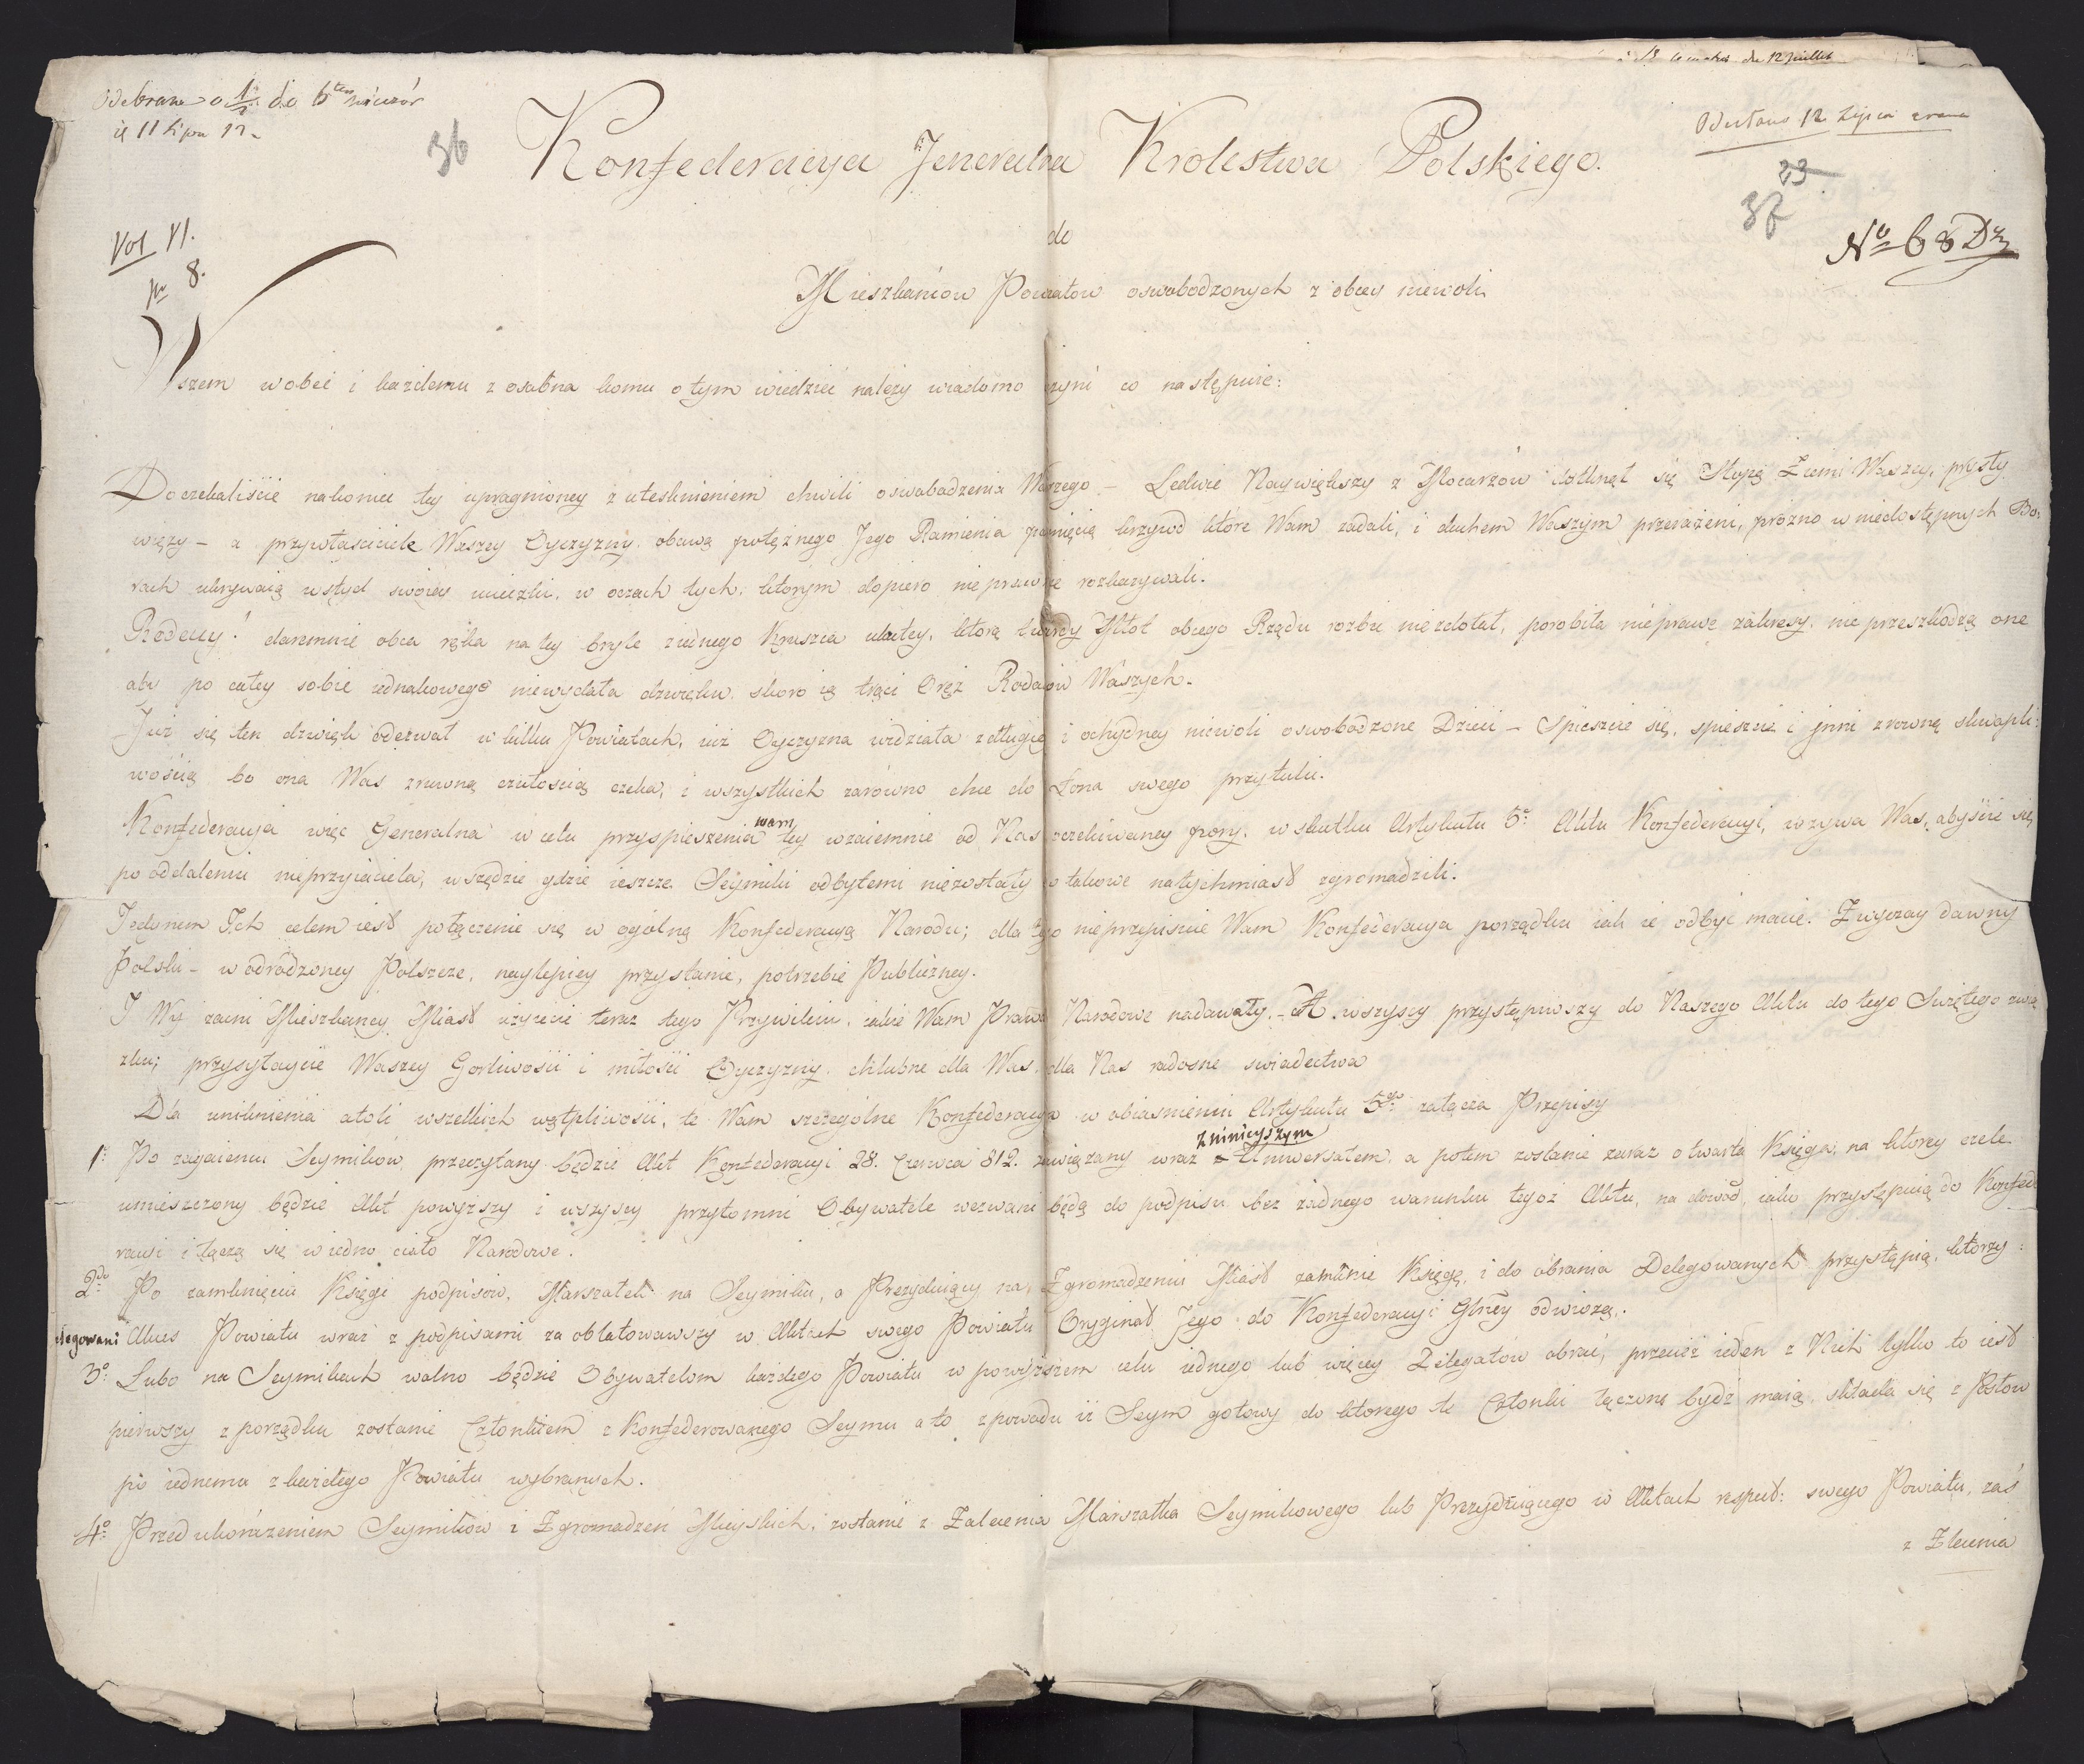 Odebrano o 1/2 do 6tey wieczór
d. 11 Lipca 12.
du 12 Juillet
Odesłano 12 Lipca zrana
36
Konfederacya Jeneralna Krolestwa Polskiego.
23
37
No 68 Dz
Vol VI.
N 8.
do
Mieszkańcow Powiatow oswobodzonych z obcey niewoli
Wszem wobec i każdemu z osobna komu o tym wiedzieć należy wiadomo czyni co następuie:
Doczekaliście nakoniec tey upragnioney z utesknieniem chwili oswobodzenia Waszego. – Ledwie Naywiększy z Mocarzów dotknął się Stopą Ziemi Waszey, prysły
więzy – a przywłaściciele Waszey Oyczyzny obawą potężnego Jego Ramienia pamięcią krzywd które Wam zadali, i duchem Waszym przerażeni, prożno w niedostępnych Bo:
rach ukrywaią wstyd swoiey ucieczki, w oczach tych, ktorym dopiero nieprawnie rozkazywali.
Rodacy! daremnie obca ręka na tey bryle z iednego Kruszcu ulaney, ktorą twardy Młot obcego Rządu rozbić niezdołał, porobiła nieprawe zakresy, nie przeszkodzą one
aby po całey sobie iednakowego niewydała dzwięku, skoro ią trąci Oręż Rodaków Waszych.
Już się ten dzwięk odezwał w kilku Powiatach, iuż Oyczyzna widziała z długiey i ochydney niewoli oswobodzone Dzieci – Spieszcie się, spieszcie i inni z rowną skwapli:
wością bo ona Was z rowną czułością czeka, i wszystkich zarówno chce do Łona swego przytulić.
Konfederacya więc Generalna w celu przyspieszenia wam tey wzaiemnie od Nas oczekiwaney pory, w skutku Artykułu 5o Aktu Konfederacyi, wzywa Was, abyście się
po oddaleniu nieprzyiaciela, wszędzie gdzie ieszcze Seymiki odbytemi niezostały na takowe natychmiast zgromadzili.
Jedynem Ich celem iest połączenie się w ogólną Konfederacyą Narodu; dla tego nieprzepisuie Wam Konfederacya porządku iak ie odbyć macie. Zwyczay dawny
Polski – w odrodzoney Polszcze, naylepiey przystanie, potrzebie Publiczney.
I Wy zacni Mieszkańcy Miast użyiecie teraz tego Przywileiu, iakie Wam Prawa Narodowe nadawały. – A wszyscy przystąpiwszy do Naszego Aktu do tego Swiętego zwią
zku; przysyłaycie Waszey Gorliwości i miłości Oyczyzny, chlubne dla Was, dla Nas radosne swiadectwa
Dla uniknienia atoli wszelkich wątpliwości, te Wam szczególne Konfederacya w obiasnieniu Artykułu 5go załącza Przepisy
1o Po zagaieniu Seymików przeczytany będzie Akt Konfederacyi 28. Czerwca 812. zawiązany wraz z ninieyszym Uniwersałem, a potem zostanie zaraz otwarta Księga, na ktorey czele
umieszczony będzie Akt powyższy i wszyscy przytomni Obywatele wezwani będą do podpisu bez żadnego warunku tegoż Aktu, na dowód, iako przystępuią do Konfede
racyi i łączą się w iedno ciało Narodowe.
2do Po zamknięciu Księgi podpisów, Marszałek na Seymiku, a Prezyduiący na Zgromadzeniu Miast zamknie Księgę, i do obrania Delegowanych przystąpią, ktorzy:
delegowani Akces Powiatu wraz z podpisami zaoblatowawszy w Aktach swego Powiatu Oryginał Jego do Konfederacyi Głney odwiozą.
3o Lubo na Seymikach wolno będzie Obywatelom każdego Powiatu w powyższem celu iednego lub więcey Delegatów obrać, przecież ieden z Nich tylko to iest
pierwszy z porządku zostanie Członkiem z Konfederowanego Seymu a to z powodu iż Seym gotowy do ktorego te Członki łączone bydź maią, składa się z Posłow
po iednemu z każdego Powiatu wybranych.
4o Przed ukończeniem Seymików i Zgromadzeń Mieyskich, zostanie z Zalecenia Marszałka Seymikowego lub Prezyduiącego w Aktach respect: swego Powiatu, zaś
z Zlecenia